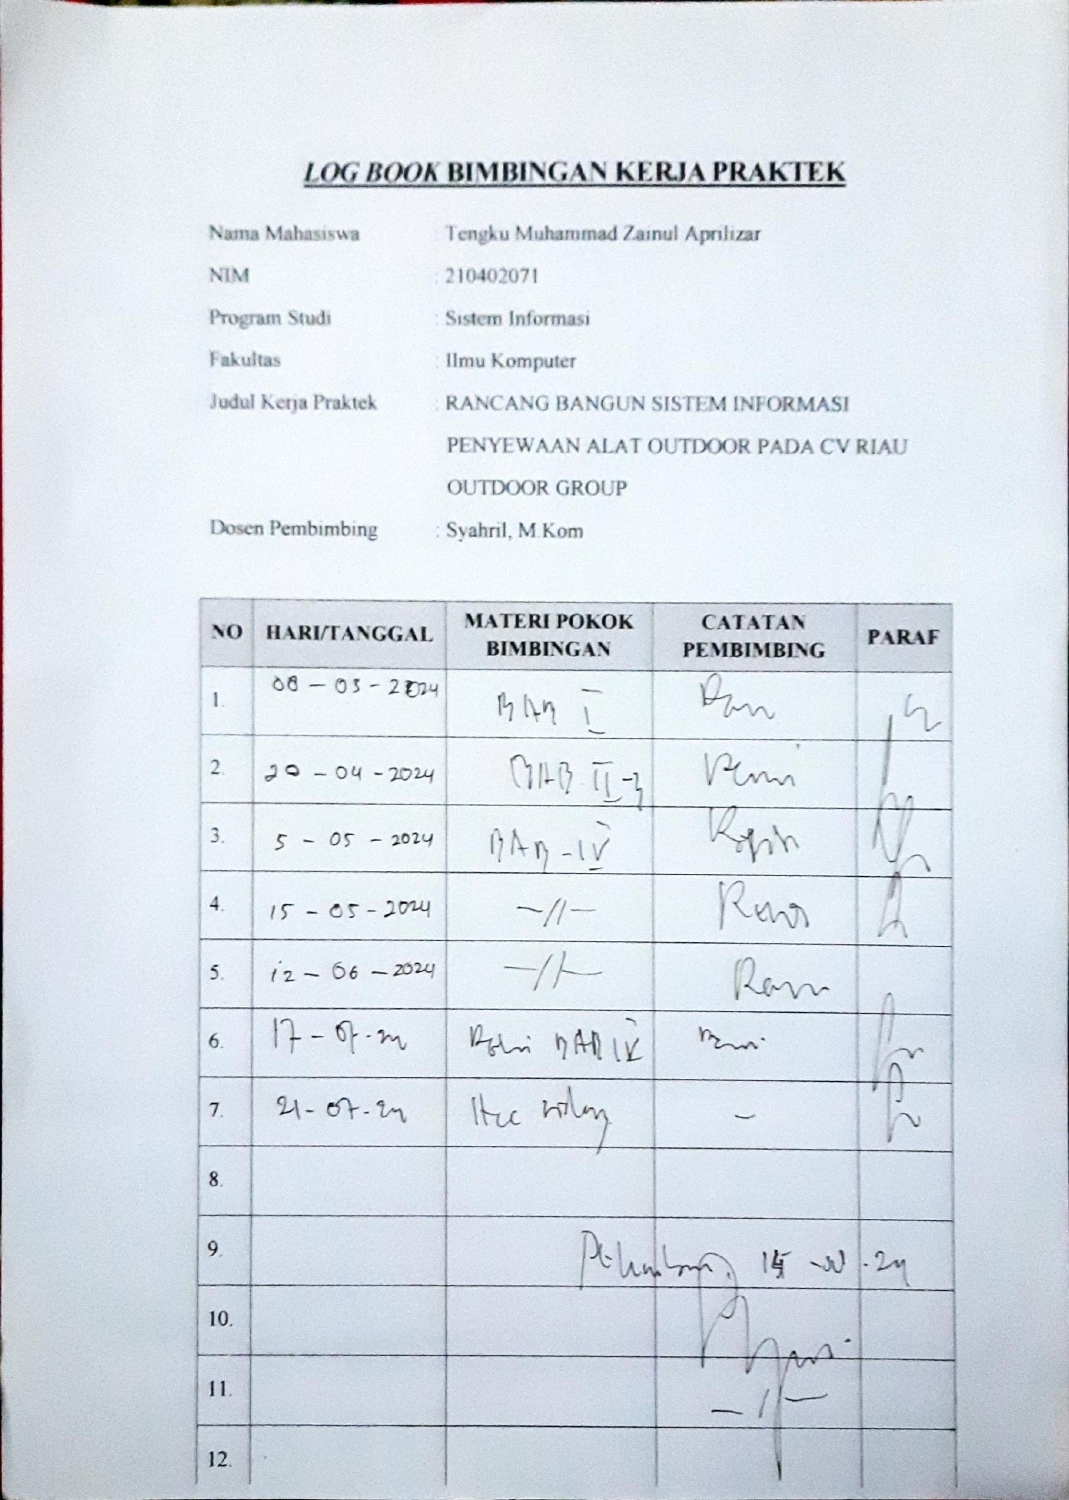 LOG BOOK BIMBINGAN KERJA PRAKTEK
Nama Mahasiswa : Tengku Muhammad Zainul Aprilizar
NIM : 210402071
Program Studi : Sistem Informasi
Fakultas : Ilmu Komputer
Judul Kerja Praktek : RANCANG BANGUN SISTEM INFORMASI
PENYEWAAN ALAT OUTDOOR PADA CV RIAU
OUTDOOR GROUP
Dosen Pembimbing : Syahril, M.Kom
NO HARI/TANGGAL MATERI POKOK BIMBINGAN CATATAN PEMBIMBING PARAF
1. 08-03-2024 BAB I
2. 20-04-2024 BAB II-
3. 5-05-2024 BAB-IV
4. 15-05-2024 -//-
5. 12-06-2024 -//-
6. 17-07-24 BAB IV
7. 21-07-24 Acc -
8.
9. Pekanbaru,
10.
11. -//-
12.